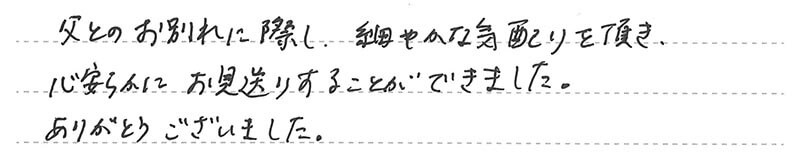 父とのお別れに際し、細やかな気配りを頂き、
心安らかにお見送りすることができました。
ありがとうございました。